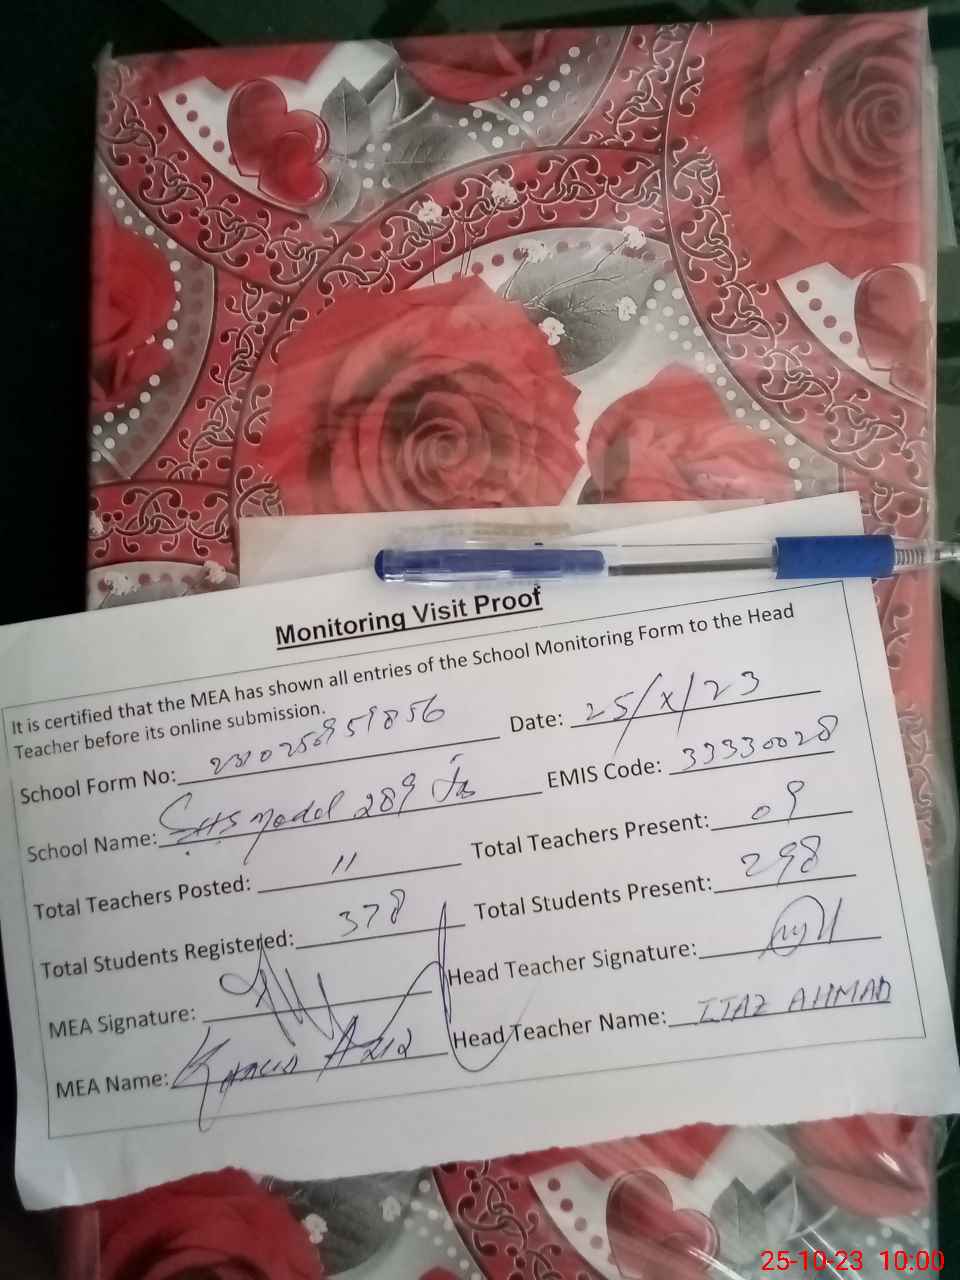 Monitoring Visit Proof
It is certified that the MEA has shown all entries of the School Monitoring Form to the Head
Teacher before its online submission.
School Form No: Date: 25/X/23
School Name: Model 289 EMIS Code: 33330028
Total Teachers Posted: 11 Total Teachers Present: 09
Total Students Registered: 378 Total Students Present: 298
MEA Signature: Head Teacher Signature:
MEA Name: Head Teacher Name: IJAZ AHMAD
25-10-23 10:00